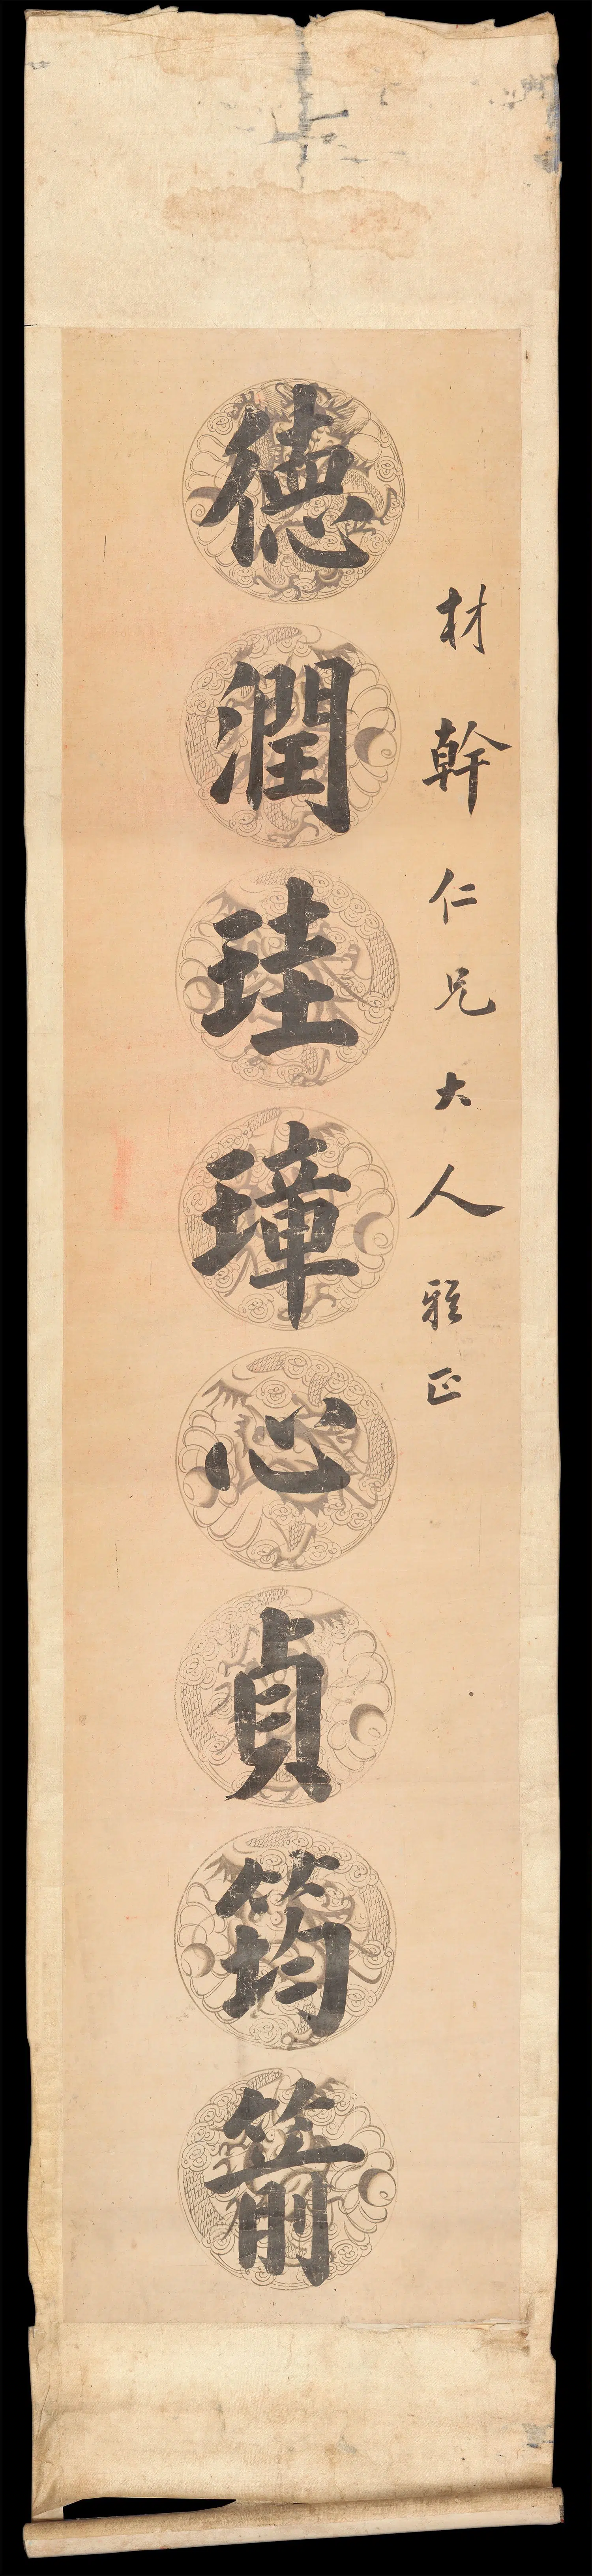 材幹仁兄大人雅正
德潤珪璋心貞筠箭